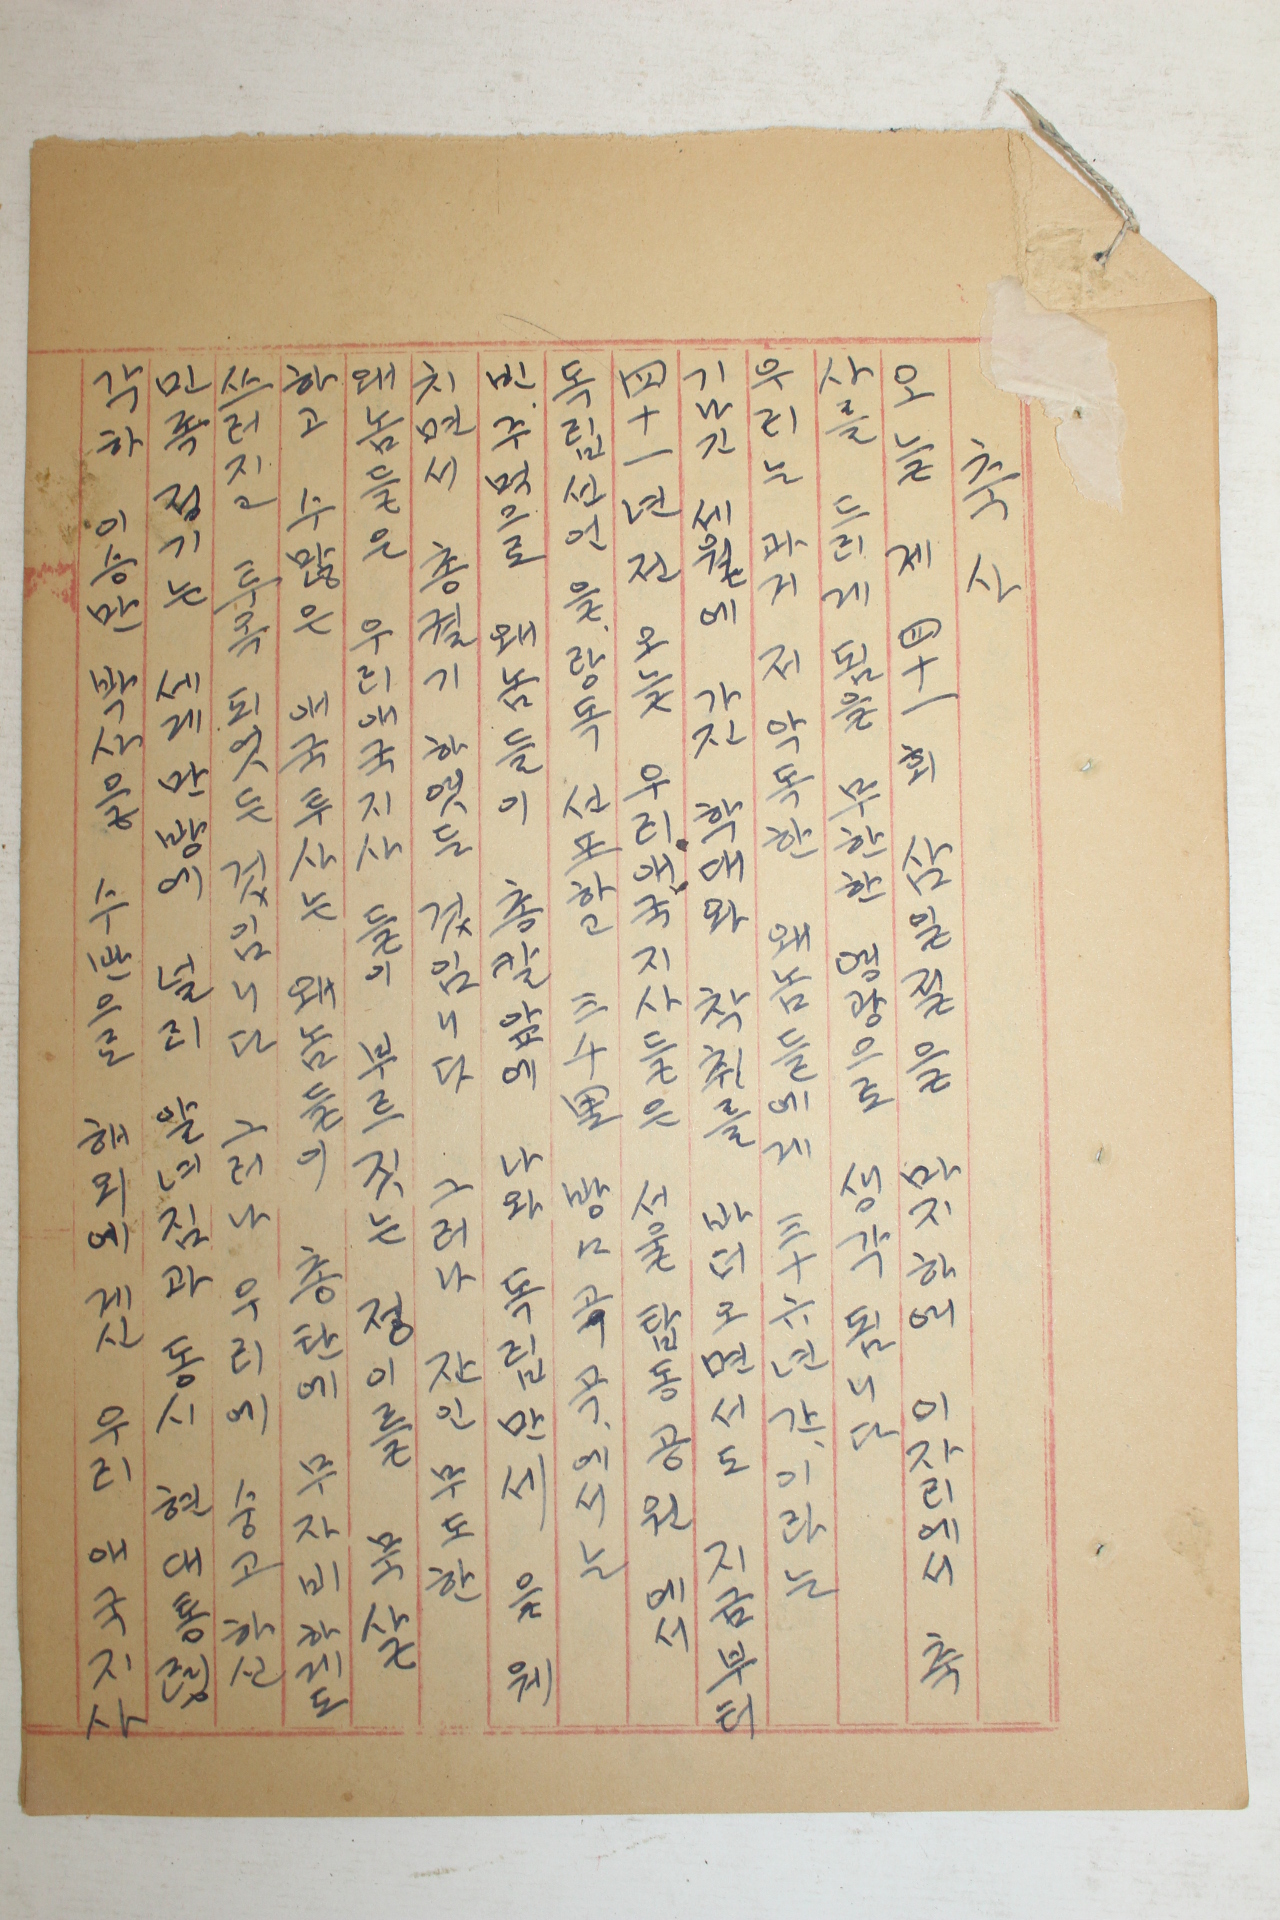 축사
오늘 제 四十一회 삼일절을 마지하에 이자리에서 축
사를 드리게 됨을 무한한 영광으로 생각됩니다
우리는 과거 저 악독한 왜놈들에게 三十六년간 이라는
기나긴 세월에 갖간 학대와 착취를 바더오면서도 지금부터
四十一년전 오늘 우리 애국지사들은 서울탑동공원에서
독립선언을 랑독 선포하고 三千里 방 곡곡에서는
빈주먹으로 왜놈들이 총칼앞에 나와 독립만세을 웨
치면서 총궐기 하엿든 것입니다 그러나 잔인무도한
왜놈들은 우리애국지사들이 부르짓는 정이를 묵살
하고 수많은 애국투사는 왜놈들이 총탄에 무자비하게도
쓰러지고 투옥되엿든 것임니다 그러나 우리에 숭고하신
민족정기는 세게만방에 널리 알녀짐과 동시 현대통령
각하 이승만 박사을 수반으로 해외에 게신 우리 애국지사